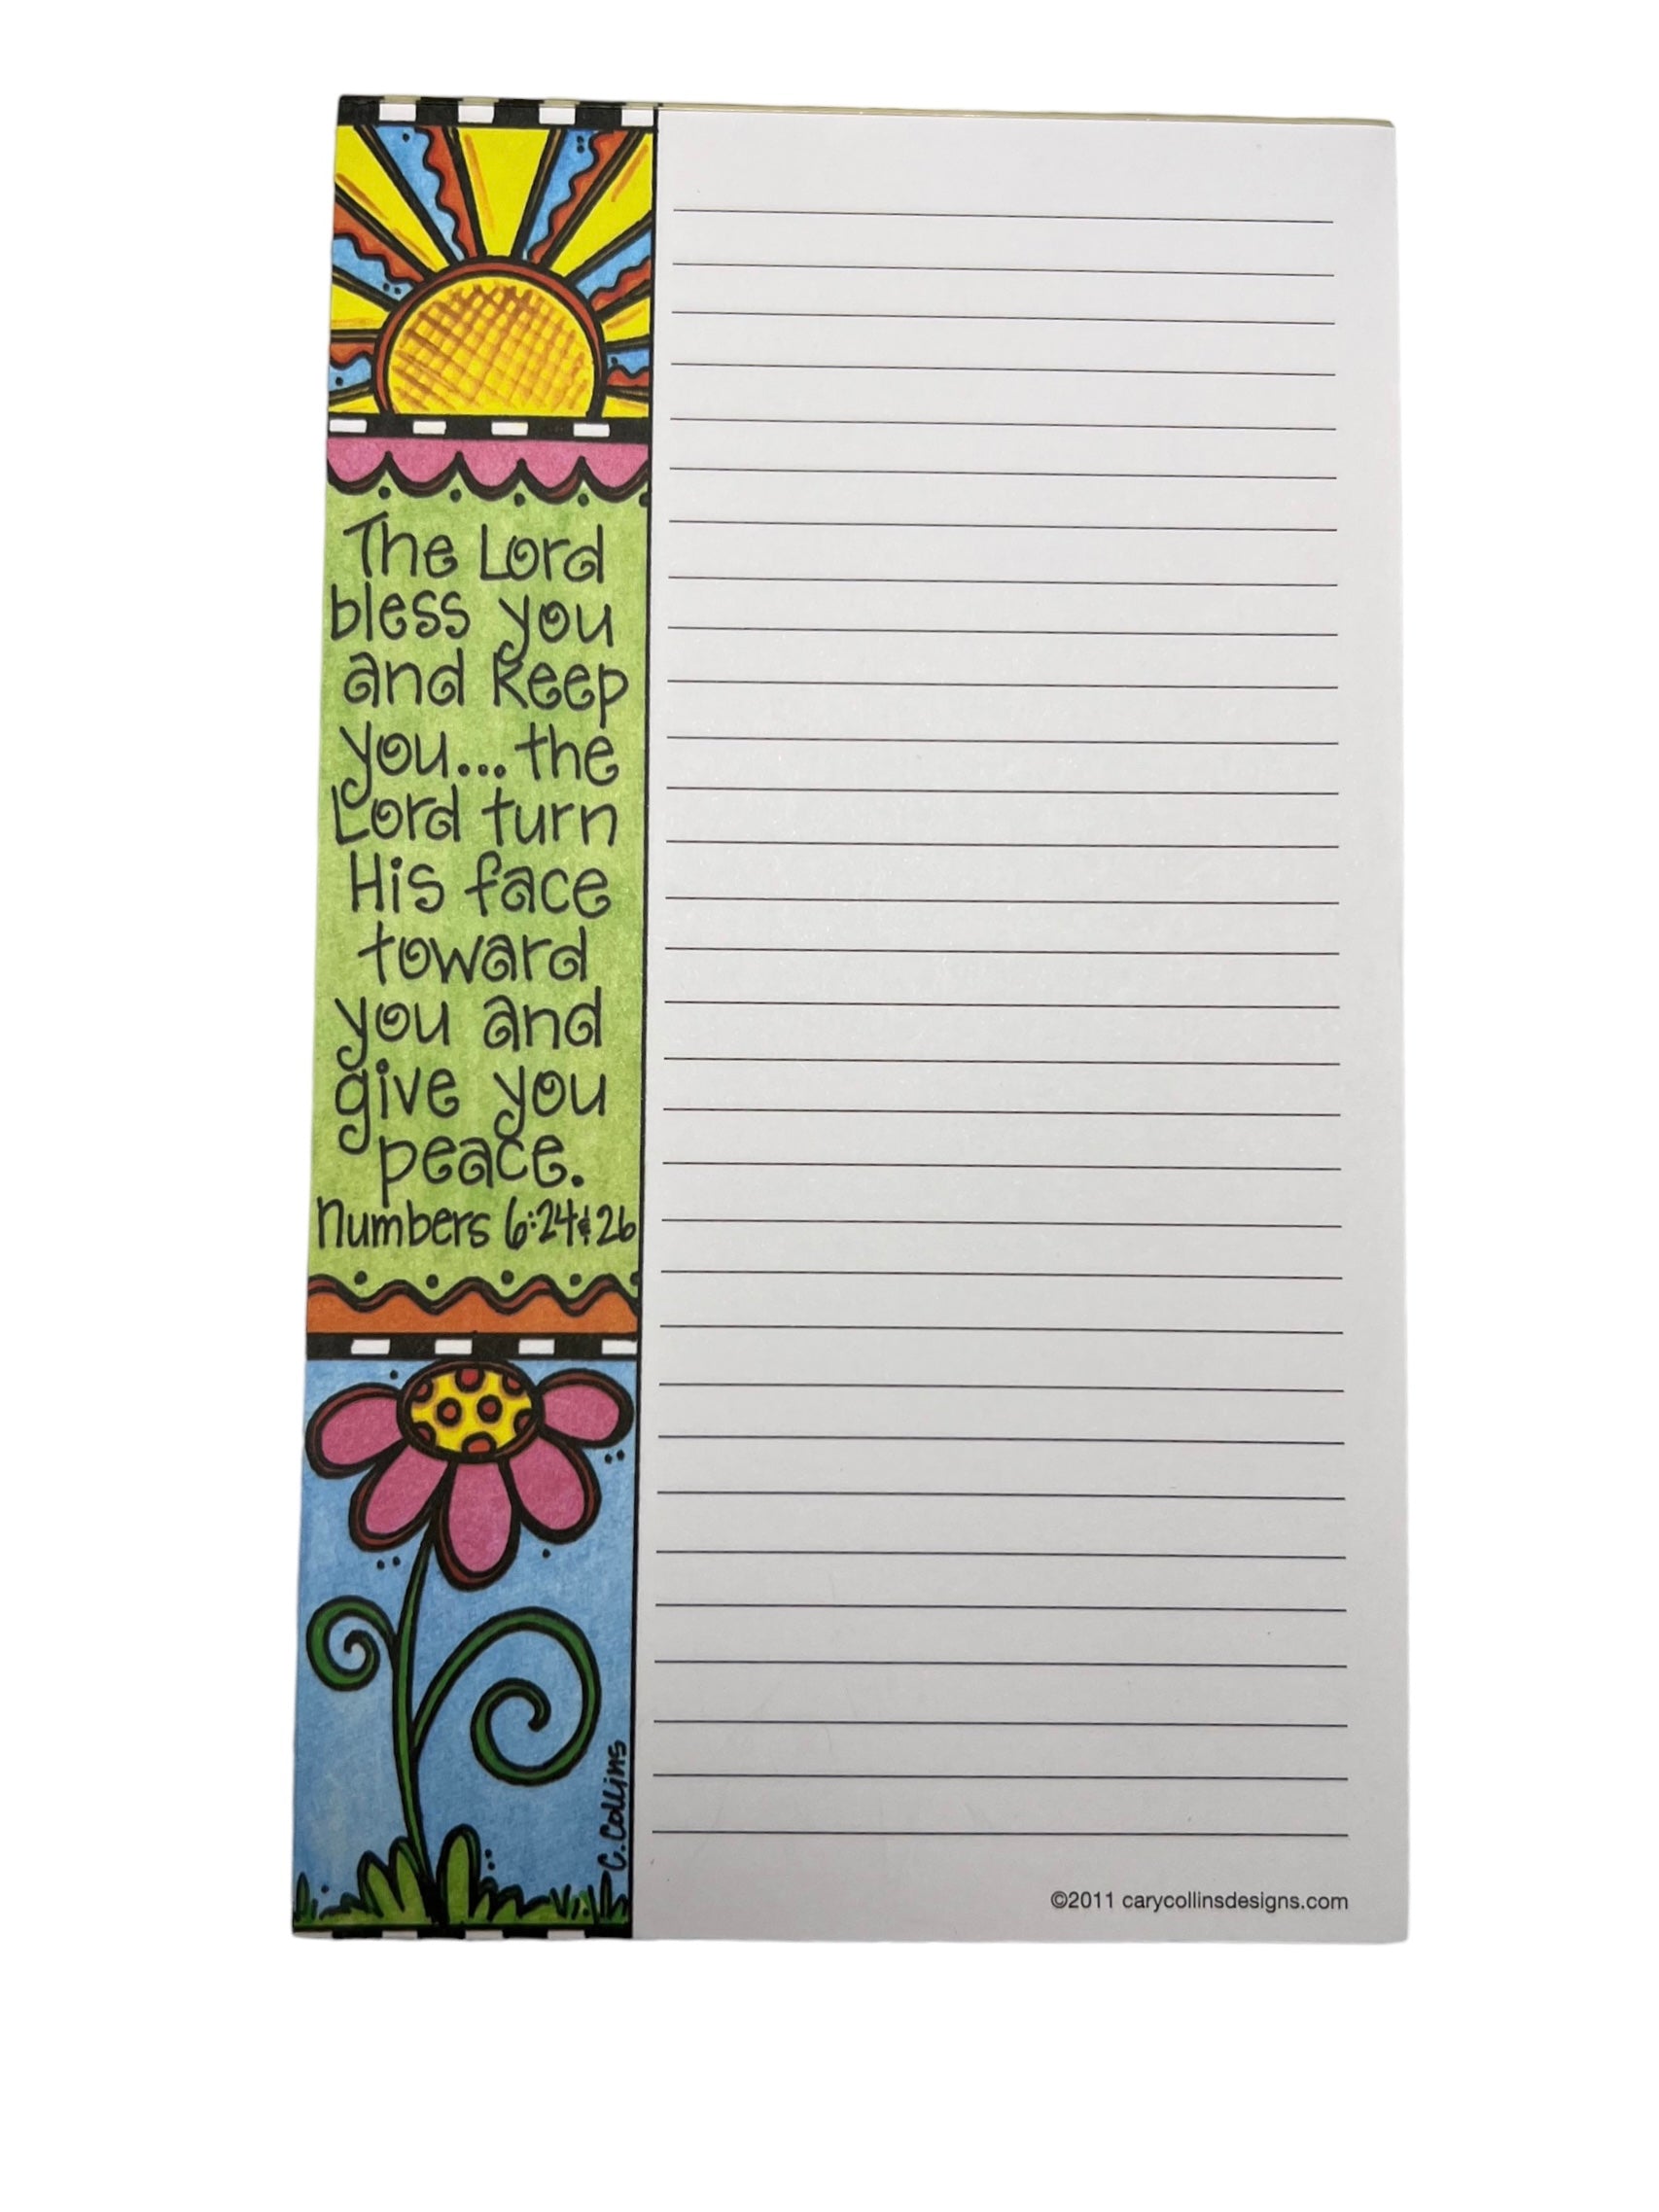 The Lord
bless you
and keep
you... the
Lord turn
His face
toward
you and
give you
peace.
Numbers 6:24&26
C. Collins
©2011 carycollinsdesigns.com